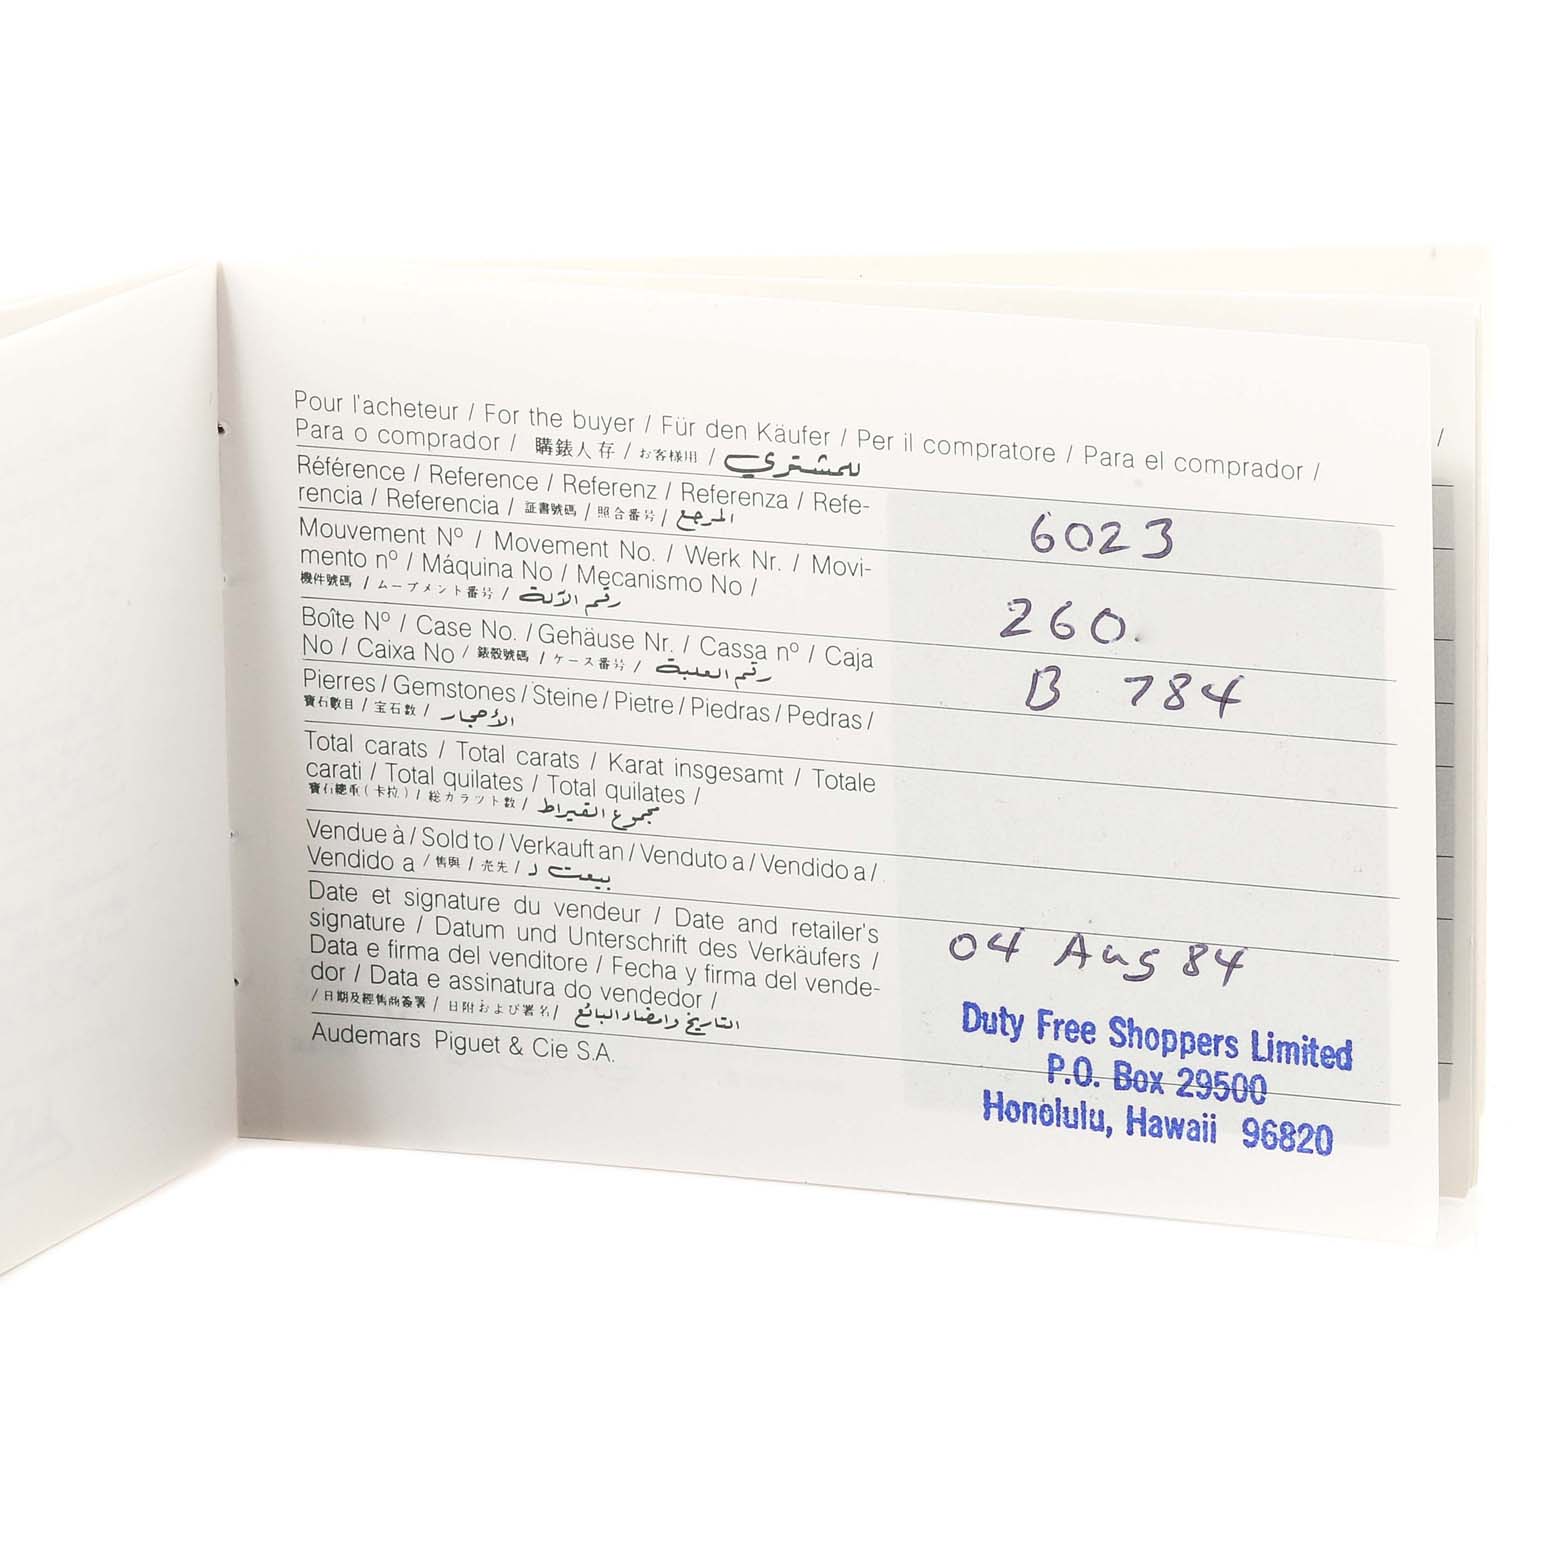 Pour l'acheteur / For the buyer / Für den Käufer / Per il compratore / Para el comprador /
Para o comprador / 購錶人存 / お客様用 / للمشتري
Référence / Reference / Referenz / Referenza / Refe-
rencia / Referencia / 証書號碼 / 照合番号 / المرجع
6023
Mouvement Nº / Movement No. / Werk Nr. / Movi-
mento nº / Máquina No / Mecanismo No /
機件號碼 / ムーブメント番号 / رقم الآلة
260.
Boîte Nº / Case No. / Gehäuse Nr. / Cassa nº / Caja
No / Caixa No / 錶殼號碼 / ケース番号 / رقم العلبة
B 784
Pierres / Gemstones / Steine / Pietre / Piedras / Pedras /
寶石數目 / 宝石数 / الأحجار
Total carats / Total carats / Karat insgesamt / Totale
carati / Total quilates / Total quilates /
寶石總重(卡拉) / 総カラット数 / مجموع القيراط
Vendue à / Sold to / Verkauft an / Venduto a / Vendido a /
Vendido a / 售與 / 売先 / بيعت لـ
Date et signature du vendeur / Date and retailer's
signature / Datum und Unterschrift des Verkäufers /
Data e firma del venditore / Fecha y firma del vende-
dor / Data e assinatura do vendedor /
/ 日期及經售商簽署 / 日附および署名 / التاريخ وامضاء البائع
04 Aug 84
Audemars Piguet & Cie S.A.
Duty Free Shoppers Limited
P.O. Box 29500
Honolulu, Hawaii 96820